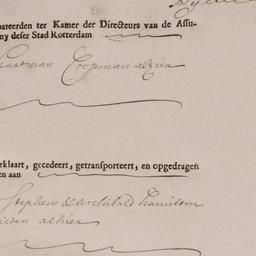 pareerden ter Kamer der Directeurs van de Assu-
ny deser Stad Rotterdam
Coopman alhier
rklaart, gecedeert, getransporteert, en opgedragen
en aan
Stephen & Archibald Hamilton
lieden alhier